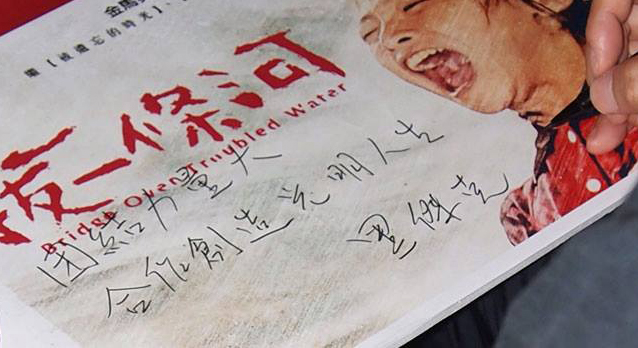 金馬
繼【被遺忘的時光】、
拔一條河
Bridge Over Troubled Water
團結力量大
合作創造光明人生